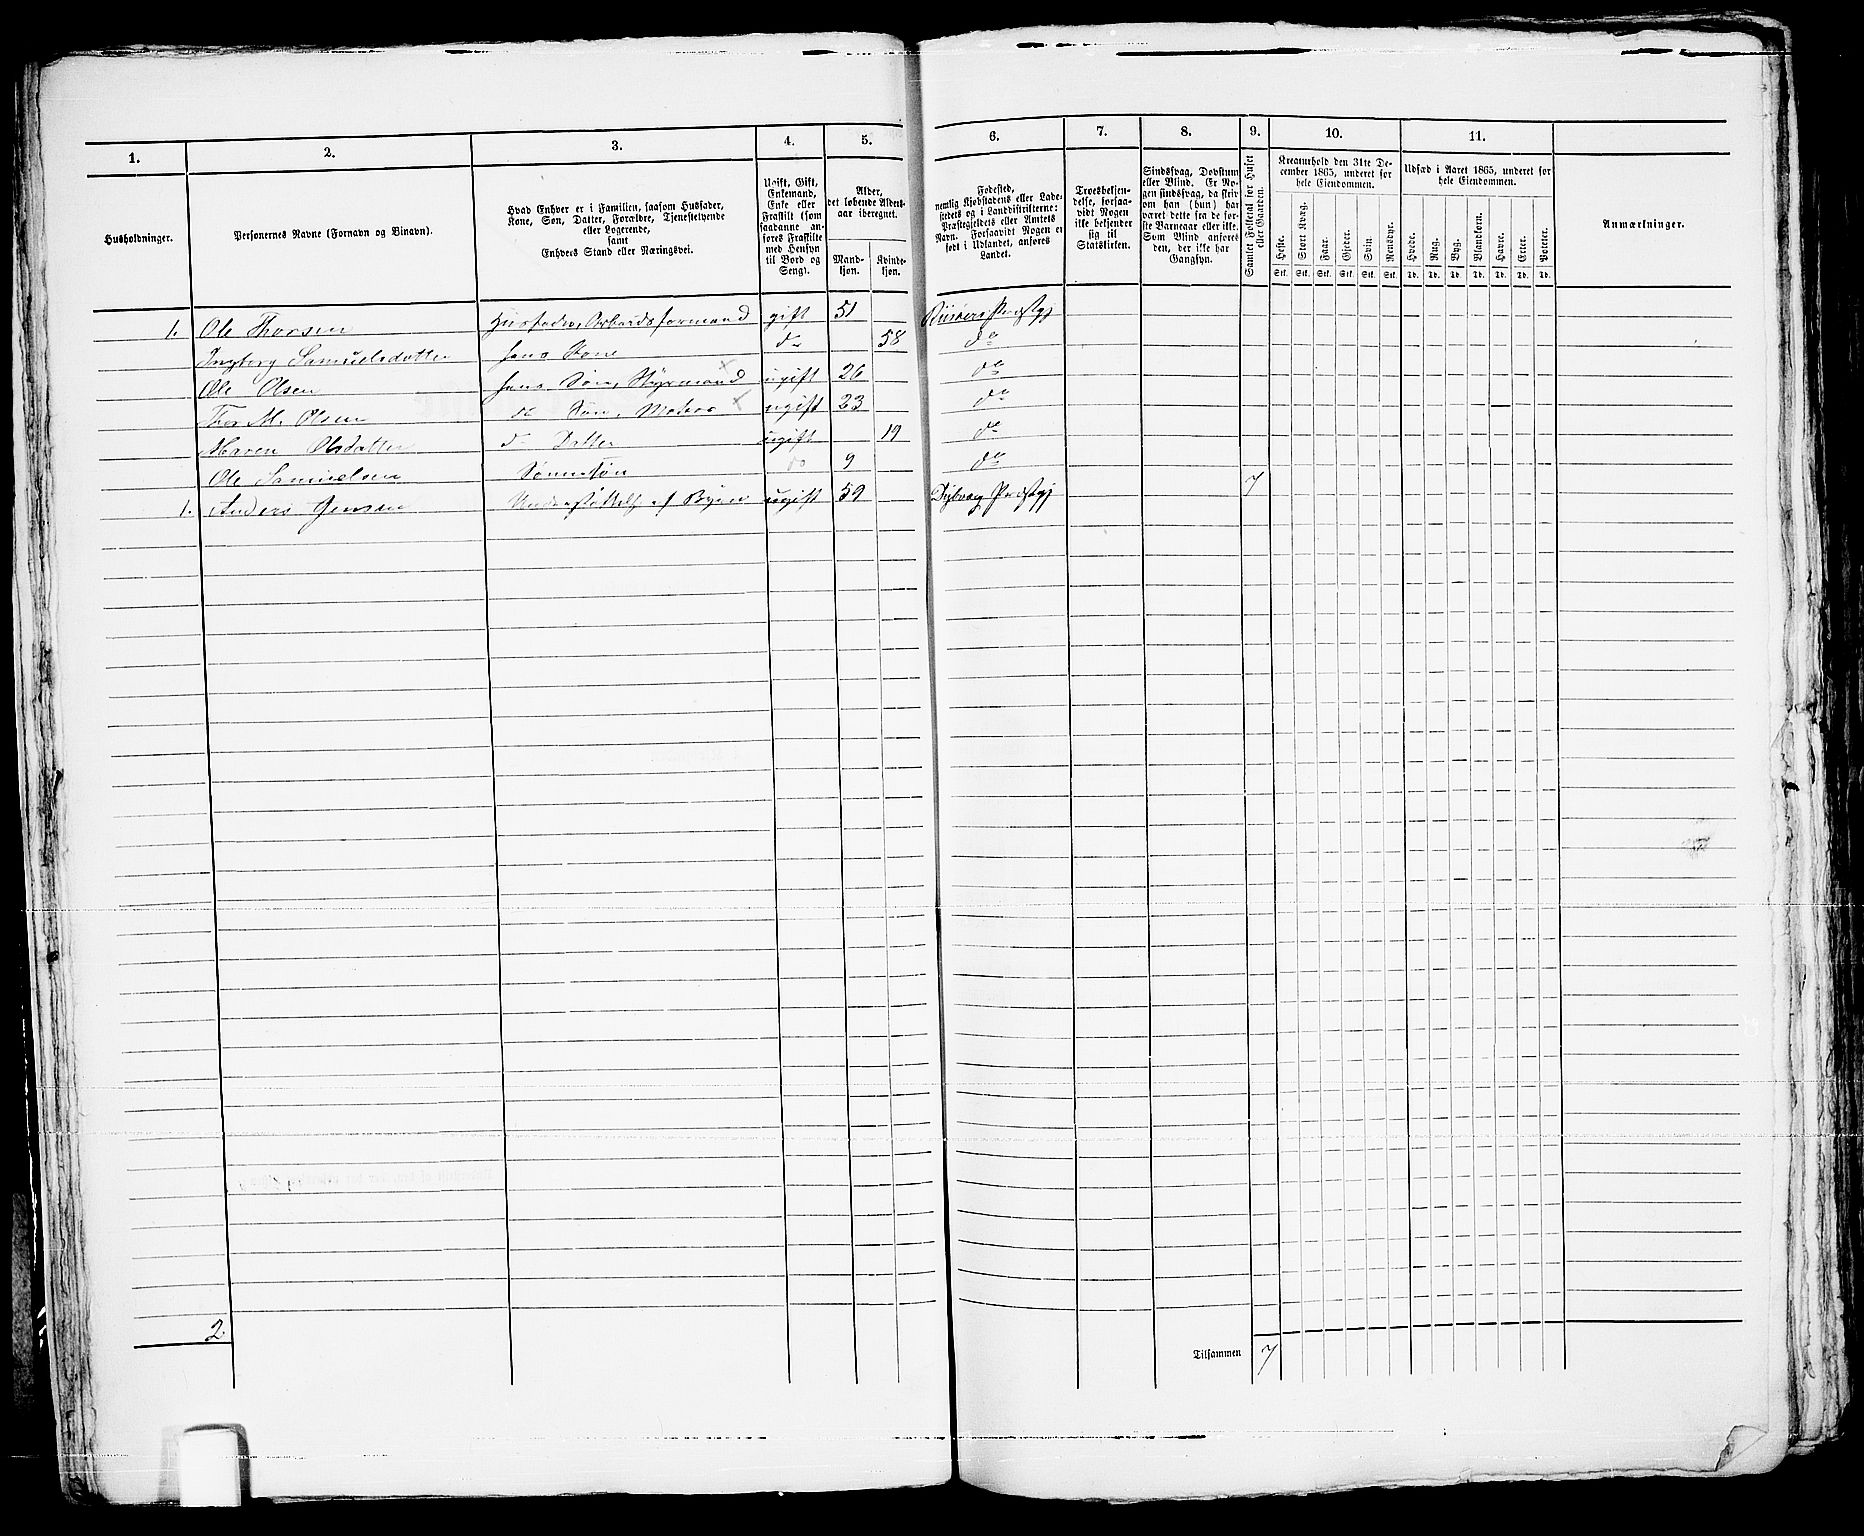 1.
2.
3.
4.
5.
6.
7.
8.
9.
10.
11.
Husholdninger.
Personernes Navne (Fornavn og Binavn).
Hvad Enhver er i Familien, saasom Husfader,
Kone, Søn, Datter, Forældre, Tjenestetyende
eller Logerende,
samt
Enhvers Stand eller Næringsvei.
Ugift, Gift,
Enkemand,
Enke eller
Fraskilt (som
saadanne an-
føres Fraskilte
med Hensyn
til Bord og
Seng).
Alder,
det løbende Alders-
aar iberegnet.
Mand-
kjøn.
Kvinde-
kjøn.
Fødested,
nemlig Kjøbstadens eller Lade-
stedets og i Landdistrikterne:
Præstegjeldets eller Amtets
Navn. Forsaavidt Nogen er
født i Udlandet, anføres
Landet.
Troesbekjen-
delse, forsaa-
vidt Nogen
ikke bekjender
sig til
Statskirken.
Sindssvag, Døvstum
eller Blind. Er No-
gen sindssvag, da skriv
om han (hun) har
været dette fra de før-
ste Barneaar eller ikke.
Som Blind anføres
den, der ikke har
Gangsyn.
Samlet Folketal for Huset
eller Gaarden.
Kreaturhold den 31te De-
cember 1865, underet for
hele Eiendommen.
Heste.
Stort Kvæg.
Faar.
Gjeder.
Svin.
Rensdyr.
Stk. Stk. Stk. Stk. Stk. Stk.
Udsæd i Aaret 1865, underet for
hele Eiendommen.
Hvede.
Rug.
Byg.
Blandkorn.
Havre.
Erter.
Poteter.
Td. Td. Td. Td. Td. Td. Td.
Anmærkninger.
1. Ole Thorsen Husfader, Arbeidsformand gift 51 Præstgj
Ingborg Samuelsdatter hans Kone do 58 do
Ole Olsen hans Søn, Styrmand ugift 26 do
Thor M. Olsen do Søn, Matros ugift 23 do
Maren Olsdatter do Datter ugift 19 do
Ole Samuelsen Sønnesøn do 9 do
1. Anders Jensen Understøttelse af Byen ugift 59 Dybvaag Præstgj 7
2.
Tilsammen 7